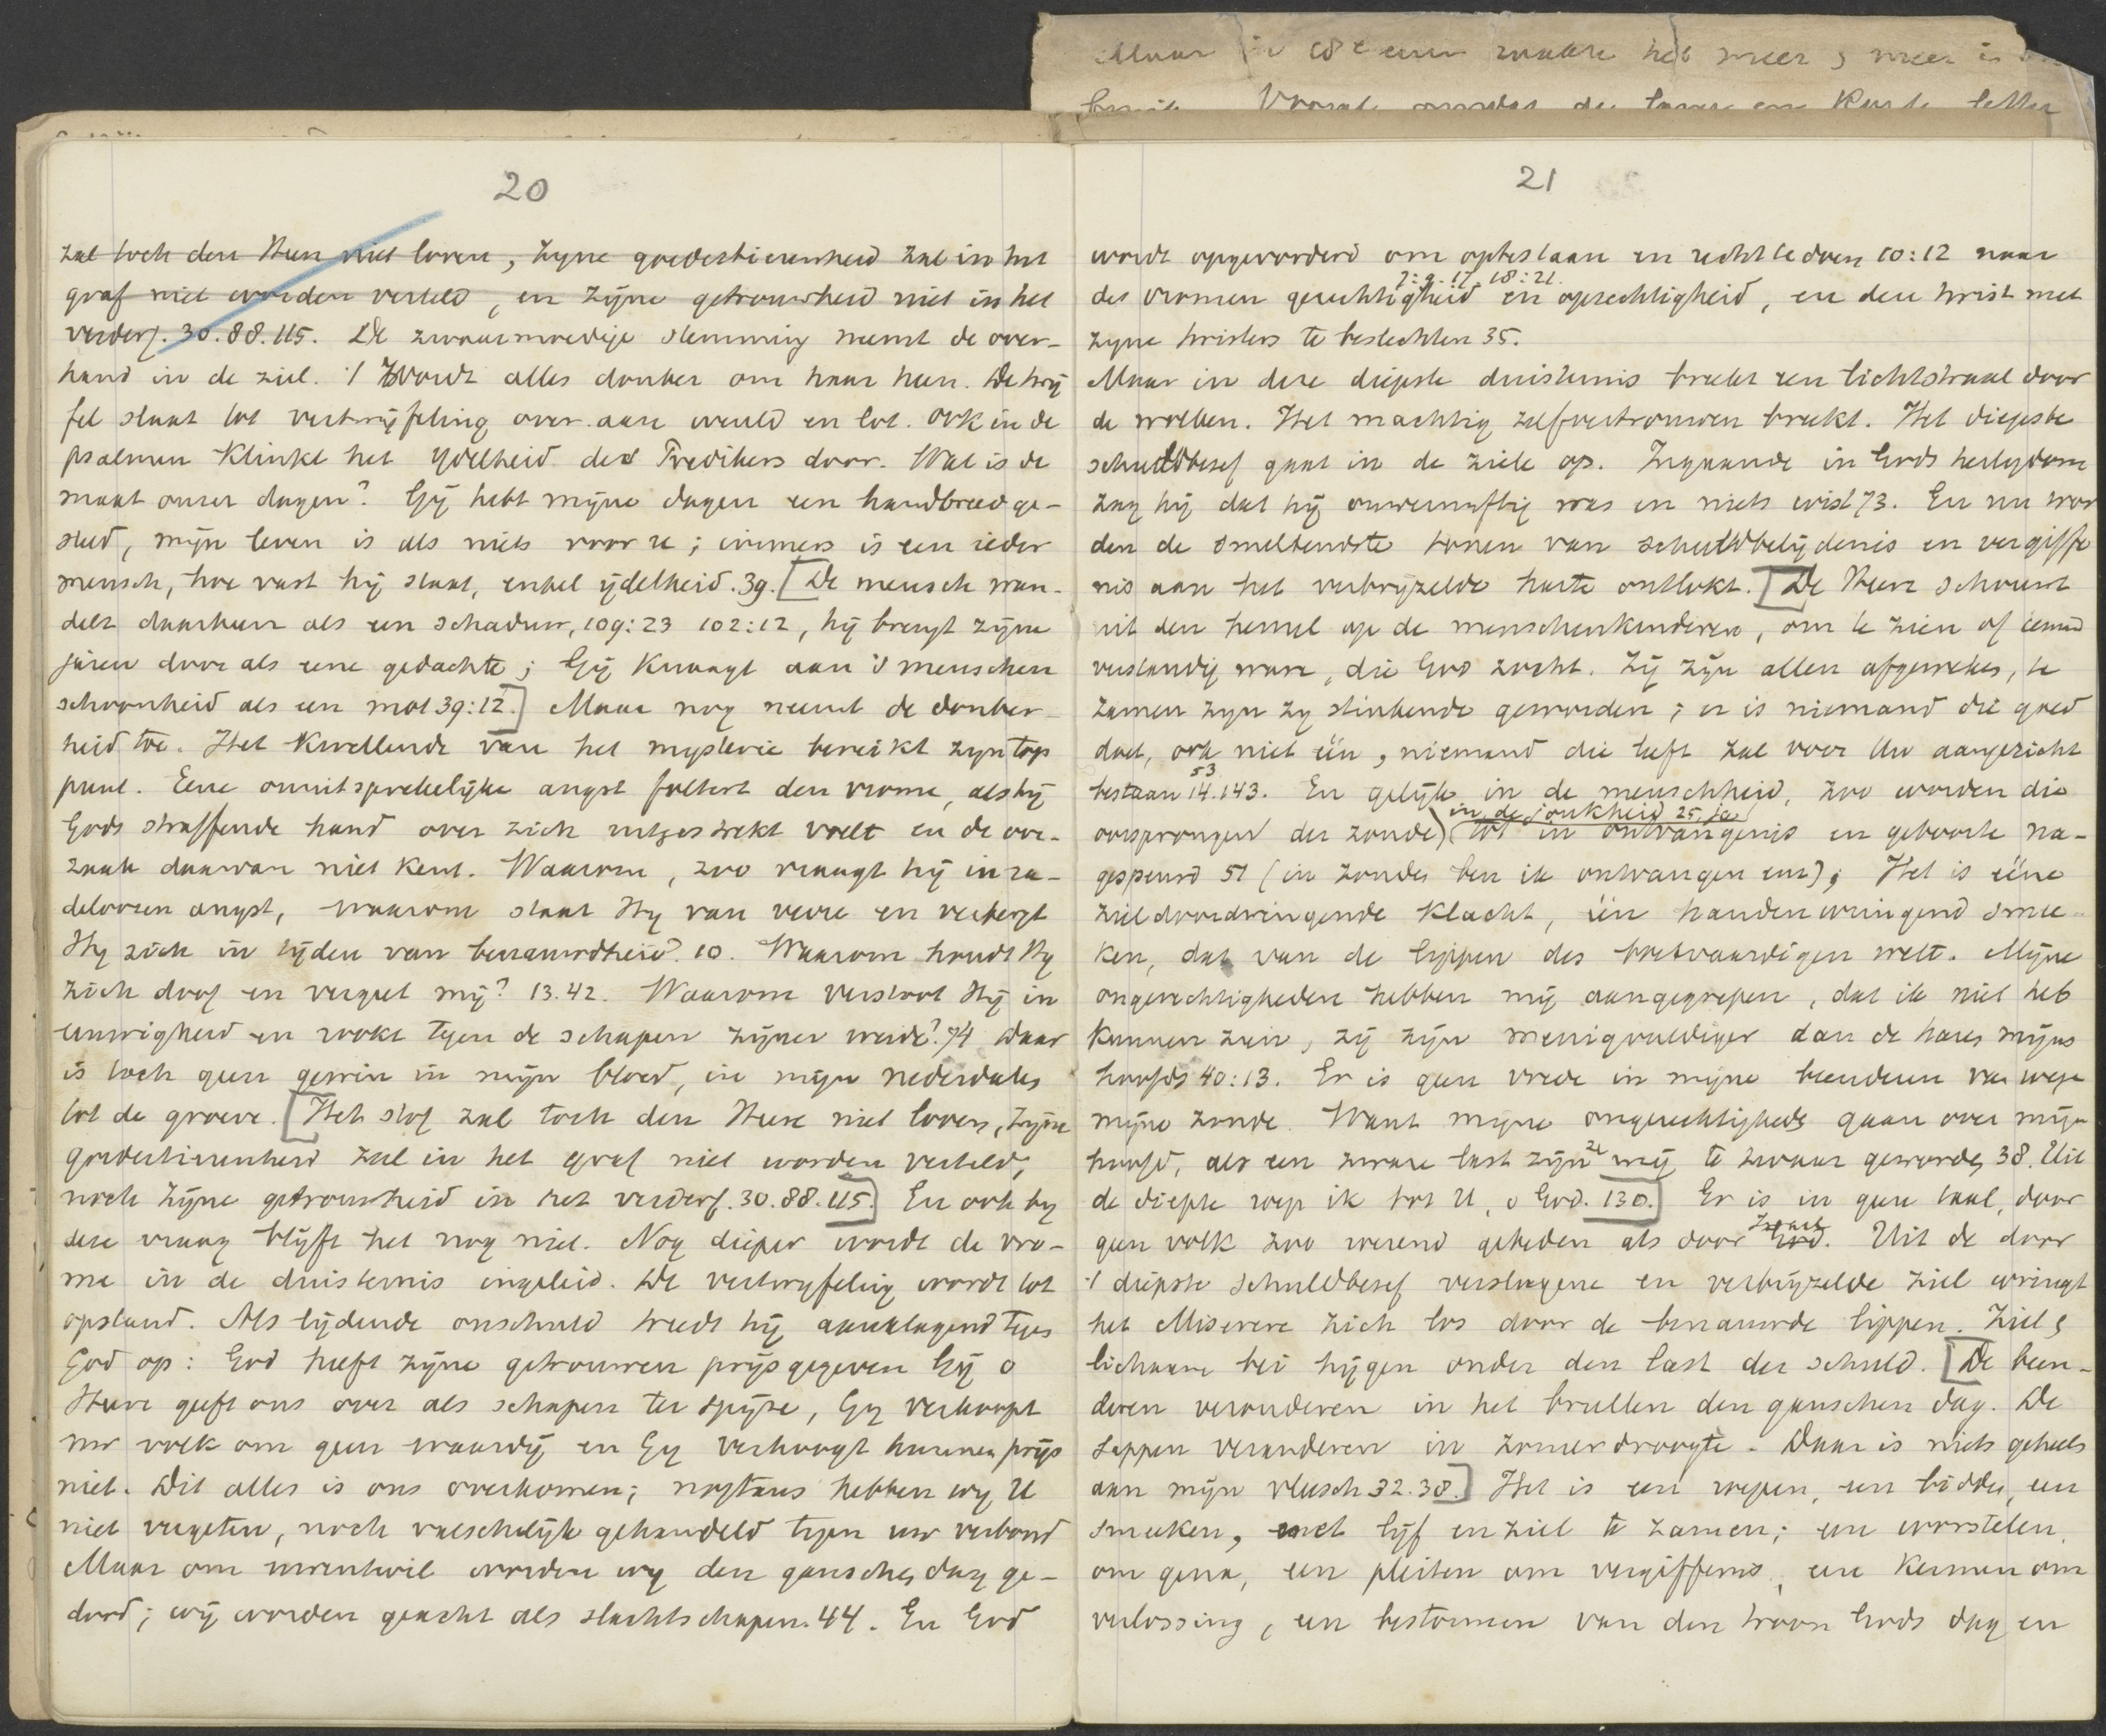 Maar in 18e eeuw raakte het meer & meer in
Vooral omdat de lange en korte letter
20
zal toch den Heer niet loven, zyne goedertierenheid zal in het
graf niet worden verteld, en zijne getrouwheid niet in het
verderf. 30.88.115. De zwaarmoedige stemming neemt de over-
hand in de ziel. 't Wordt alles donker om haar heen. De twij
fel slaat tot vertwijfeling over aan wereld en lot. Ook in de
psalmen klinkt het ydelheid des Predikers door. Wat is de
maat onzer dagen? Gij hebt mijne dagen een handbreed ge-
steld, mijn leven is als niets voor u; immers is een ieder
mensch, hoe vast hij staat, enkel ijdelheid. 39. [De mensch wan-
delt daarheen als een schaduw, 109:23 102:12, hij brengt zijne
jaren door als eene gedachte; Gij knaagt aan 's menschen
schoonheid als een mot 39:12.] Maar nog neemt de donker-
heid toe. Het kwellende van het mysterie bereikt zyn top
punt. Eene onuitsprekelijke angst foltert den vrome, als hij
Gods straffende hand over zich uitgestrekt voelt en de oor-
zaak daarvan niet kent. Waarom, zoo vraagt hij in ra-
deloozen angst, waarom staat Hy van verre en verbergt
Hy zich in tijden van benauwdheid? 10. Waarom houdt Hy
zich doof en vergeet mij? 13.42. Waarom verstoot Hij in
eeuwigheid en rookt tegen de schapen zijner weide? 74 Daar
is toch geen gewin in mijn bloed, in mijn nederdalen
tot de groeve. [Het stof zal toch den Heere niet loven, zijne
goedertierenheid zal in het graf niet worden verteld,
noch zijne getrouwheid in het verderf. 30.88.115.] En ook by
deze vraag blijft het nog niet. Nog dieper wordt de vro-
me in de duisternis ingeleid. De vertwyfeling wordt tot
opstand. Als lijdende onschuld treedt hij aanklagend tegen
God op: God heeft zijne getrouwen prijsgegeven Gij o
Heere geeft ons over als schapen ter spijze, Gy verkoopt
uw volk om geen waardij en Gy verhoogt hunnen prijs
niet. Dit alles is ons overkomen; nogtans hebben wy U
niet vergeten, noch valschelijk gehandeld tegen uw verbond
Maar om uwentwil worden wy den ganschen dag ge-
dood; wij worden geacht als slachtschapen. 44. En God
21
wordt opgevorderd om optestaan en recht te doen 10:12 naar
7:9. 17. 18:21.
des vromen gerechtigheid en oprechtigheid, en den twist met
zyne twisters te beslechten 35.
Maar in deze diepste duisternis breekt een lichtstraal door
de wolken. Het machtig zelfvertrouwen breekt. Het diepste
schuldbesef gaat in de ziele op. Ingaande in Gods heiligdom
zag hij dat hij onvernuftig was en niets wist 73. En nu wor
den de smeltendste tonen van schuldbelijdenis en vergiffe
nis aan het verbrijzelde harte ontlokt. [De Heere schouwt
uit den hemel op de menschenkinderen, om te zien of iemand
verstandig ware, die God zocht. Zij zijn allen afgeweken, te
zamen zyn zy stinkende geworden; er is niemand die goed
doet, ook niet één, niemand die leeft zal voor Uw aangezicht
53
bestaan 14.143. En gelijk in de menschheid, zoo worden die
in de jonkheid 25, ja
oorsprongen der zonde) tot in ontvangenis en geboorte na-
gespeurd 51 (in zonde ben ik ontvangen enz); Het is ééne
zieldoordringende klacht, één handenwringend smee-
ken, dat van de lippen des rechtvaardigen welt. Mijne
ongerechtigheden hebben mij aangegrepen, dat ik niet heb
kunnen zien, zij zijn menigvuldiger dan de haren mijns
hoofds 40:13. Er is geen vrede in mijne beenderen van wege
mijne zonde. Want mijne ongerechtigheden gaan over mijn
hoofd, als een zware last zijn ze mij te zwaar geworden 38. Uit
de diepte roep ik tot U, o God. 130.] Er is in geen taal, door
Israel
geen volk zoo weenend gebeden als door God. Uit de door
't diepste schuldbesef verslagene en verbrijzelde ziel wringt
het Miserere zich los door de benauwde lippen. Ziel &
lichaam bei hijgen onder den last der schuld. [De been-
deren verouderen in het brullen den ganschen dag. De
sappen veranderen in zomerdroogte. Daar is niets geheels
aan mijn vleesch 32.38.] Het is een roepen, een bidden, een
smeeken, met lijf en ziel te zamen; een worstelen
om gena, een pleiten om vergiffenis, een kermen om
verlossing, een bestormen van den troon Gods dag en